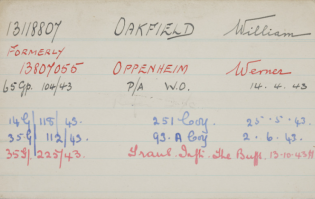 13118807 OAKFIELD William
FORMERLY
13807055 OPPENHEIM Werner
65Gp. 104/43 P/A W.O. 14.4.43
14G 118/43. 251 Coy. 25.5.43.
35G 112/43. 93.A Coy 2.6.43.
35G. 225/43. The Buffs. 13.10.43